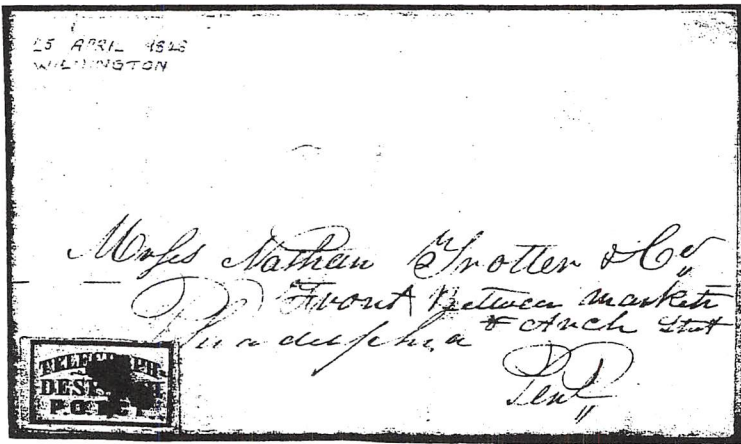 25 APRIL
WILMINGTON
Messs Nathan Trotter & Co
Front Between market
& Arch Street
Philadelphia
Pena
TELEGRAPH
DESPATCH
P.O.